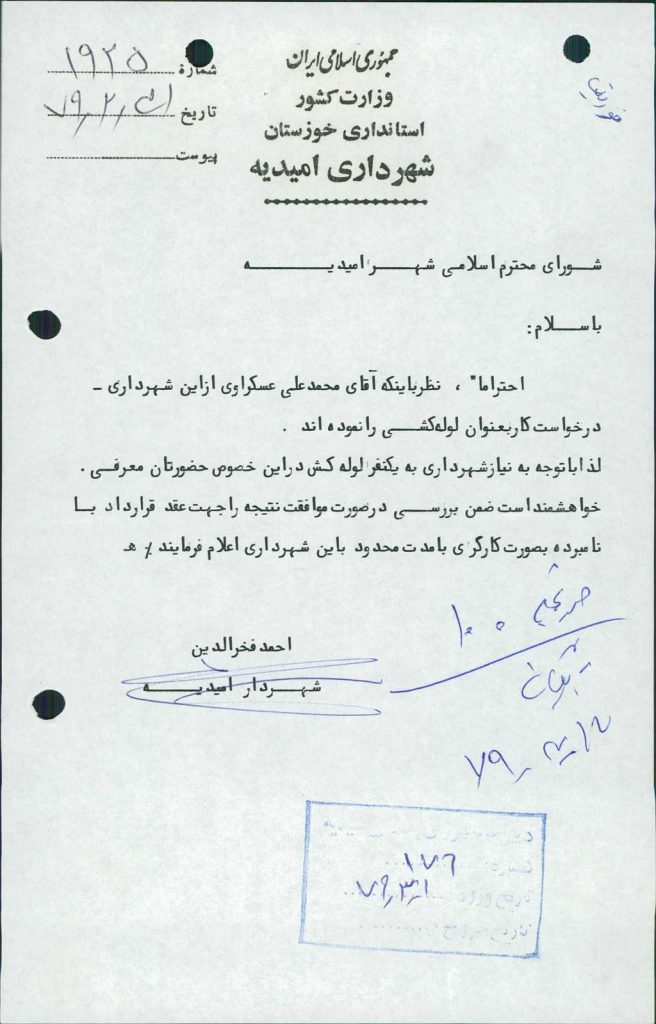 جمهوری اسلامی ایران
وزارت کشور
استانداری خوزستان
شهرداری امیدیه
شمارهٔ ۱۹۲۵
تاریخ
پیوست
شورای محترم اسلامی شهر امیدیه
باسلام:
احتراما" ، نظرباینکه آقای محمدعلی عسکراوی ازاین شهرداری -
درخواست کاربعنوان لوله‌کشی رانموده اند .
لذاباتوجه به نیازشهرداری به یکنفرلوله کش دراین خصوص حضورتان معرفی .
خواهشمنداست ضمن بررسی درصورت موافقت نتیجه راجهت عقد قرارداد با
نامبرده بصورت کارگری بامدت محدود باین شهرداری اعلام فرمایند / ه
احمدفخرالدین
شهردار امیدیه
۱۷۶